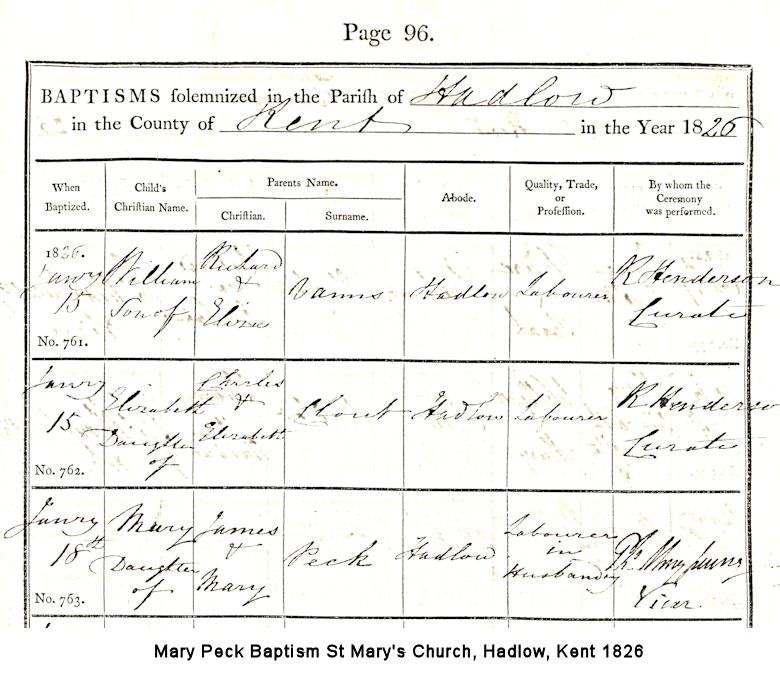 Page 96.
BAPTISMS solemnized in the Parish of Hadlow
in the County of Kent in the Year 1826
When Baptized.
Child's Christian Name.
Parents Name.
Christian.
Surname.
Abode.
Quality, Trade, or Profession.
By whom the Ceremony was performed.
1826.
Janry
15
No. 761.
William
Son of
Richard
&
Eliza
Hadlow
Labourer
R Henderson
Curate
Janry
15
No. 762.
Elizabeth
Daughter
of
Charles
&
Elizabeth
Clout
Hadlow
Labourer
R Henderso
Curate
Janry
18th
No. 763.
Mary
Daughter
of
James
&
Mary
Peck
Hadlow
Labourer
in
Husbandry
Vicar.
Mary Peck Baptism St Mary's Church, Hadlow, Kent 1826